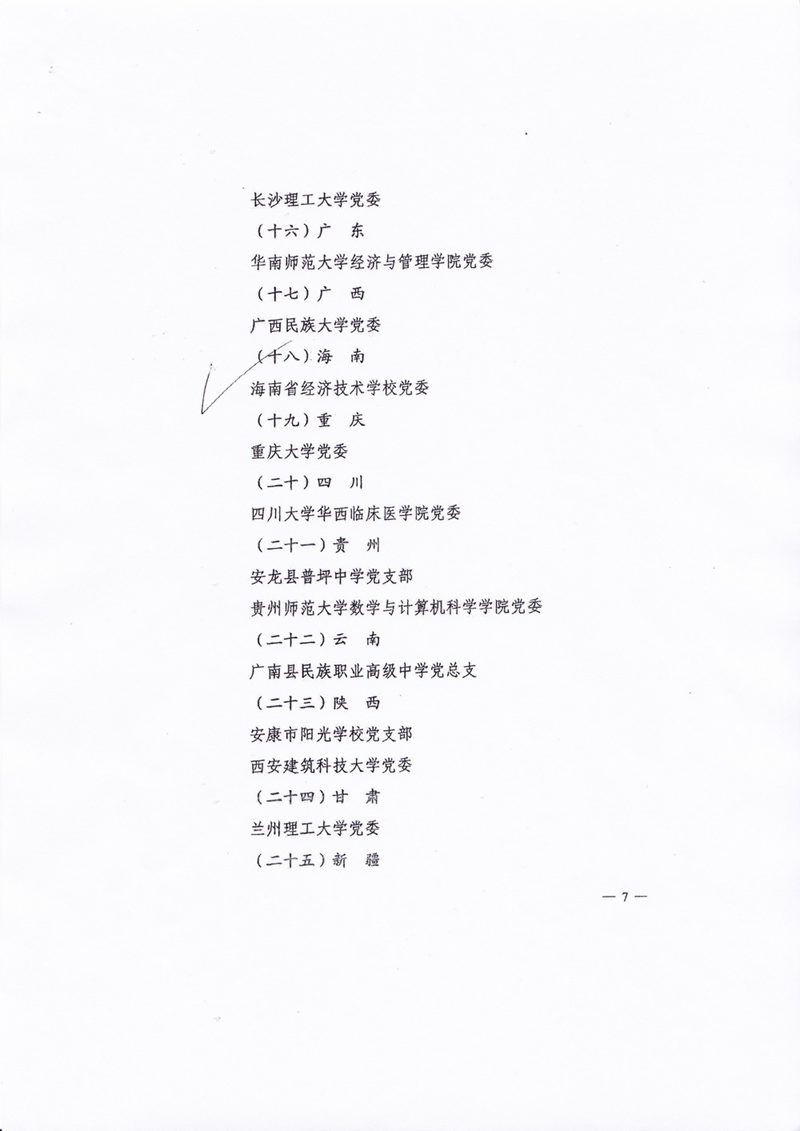 长沙理工大学党委
（十六）广　东
华南师范大学经济与管理学院党委
（十七）广　西
广西民族大学党委
（十八）海　南
海南省经济技术学校党委
（十九）重　庆
重庆大学党委
（二十）四　川
四川大学华西临床医学院党委
（二十一）贵　州
安龙县普坪中学党支部
贵州师范大学数学与计算机科学学院党委
（二十二）云　南
广南县民族职业高级中学党总支
（二十三）陕　西
安康市阳光学校党支部
西安建筑科技大学党委
（二十四）甘　肃
兰州理工大学党委
（二十五）新　疆
— 7 —